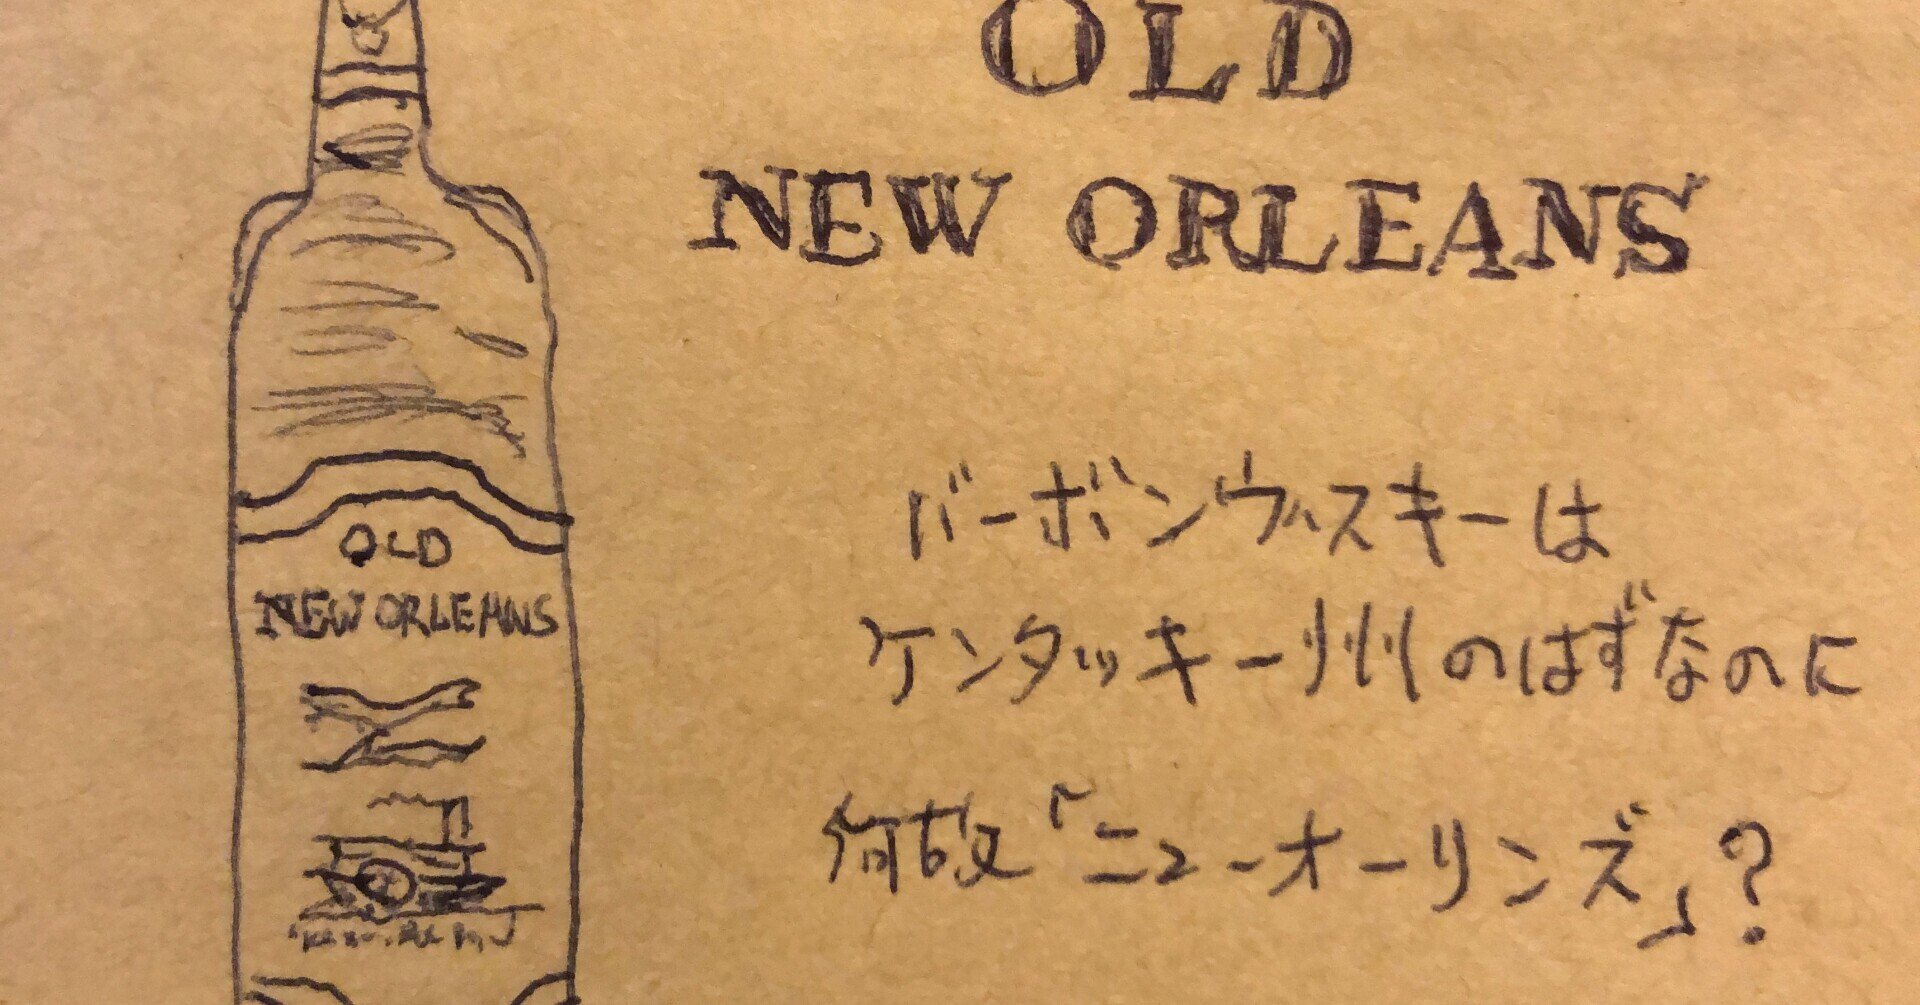 OLD
NEW ORLEANS
OLD
NEW ORLEANS
バーボンウィスキーは
ケンタッキー州のはずなのに
何故「ニューオーリンズ」?